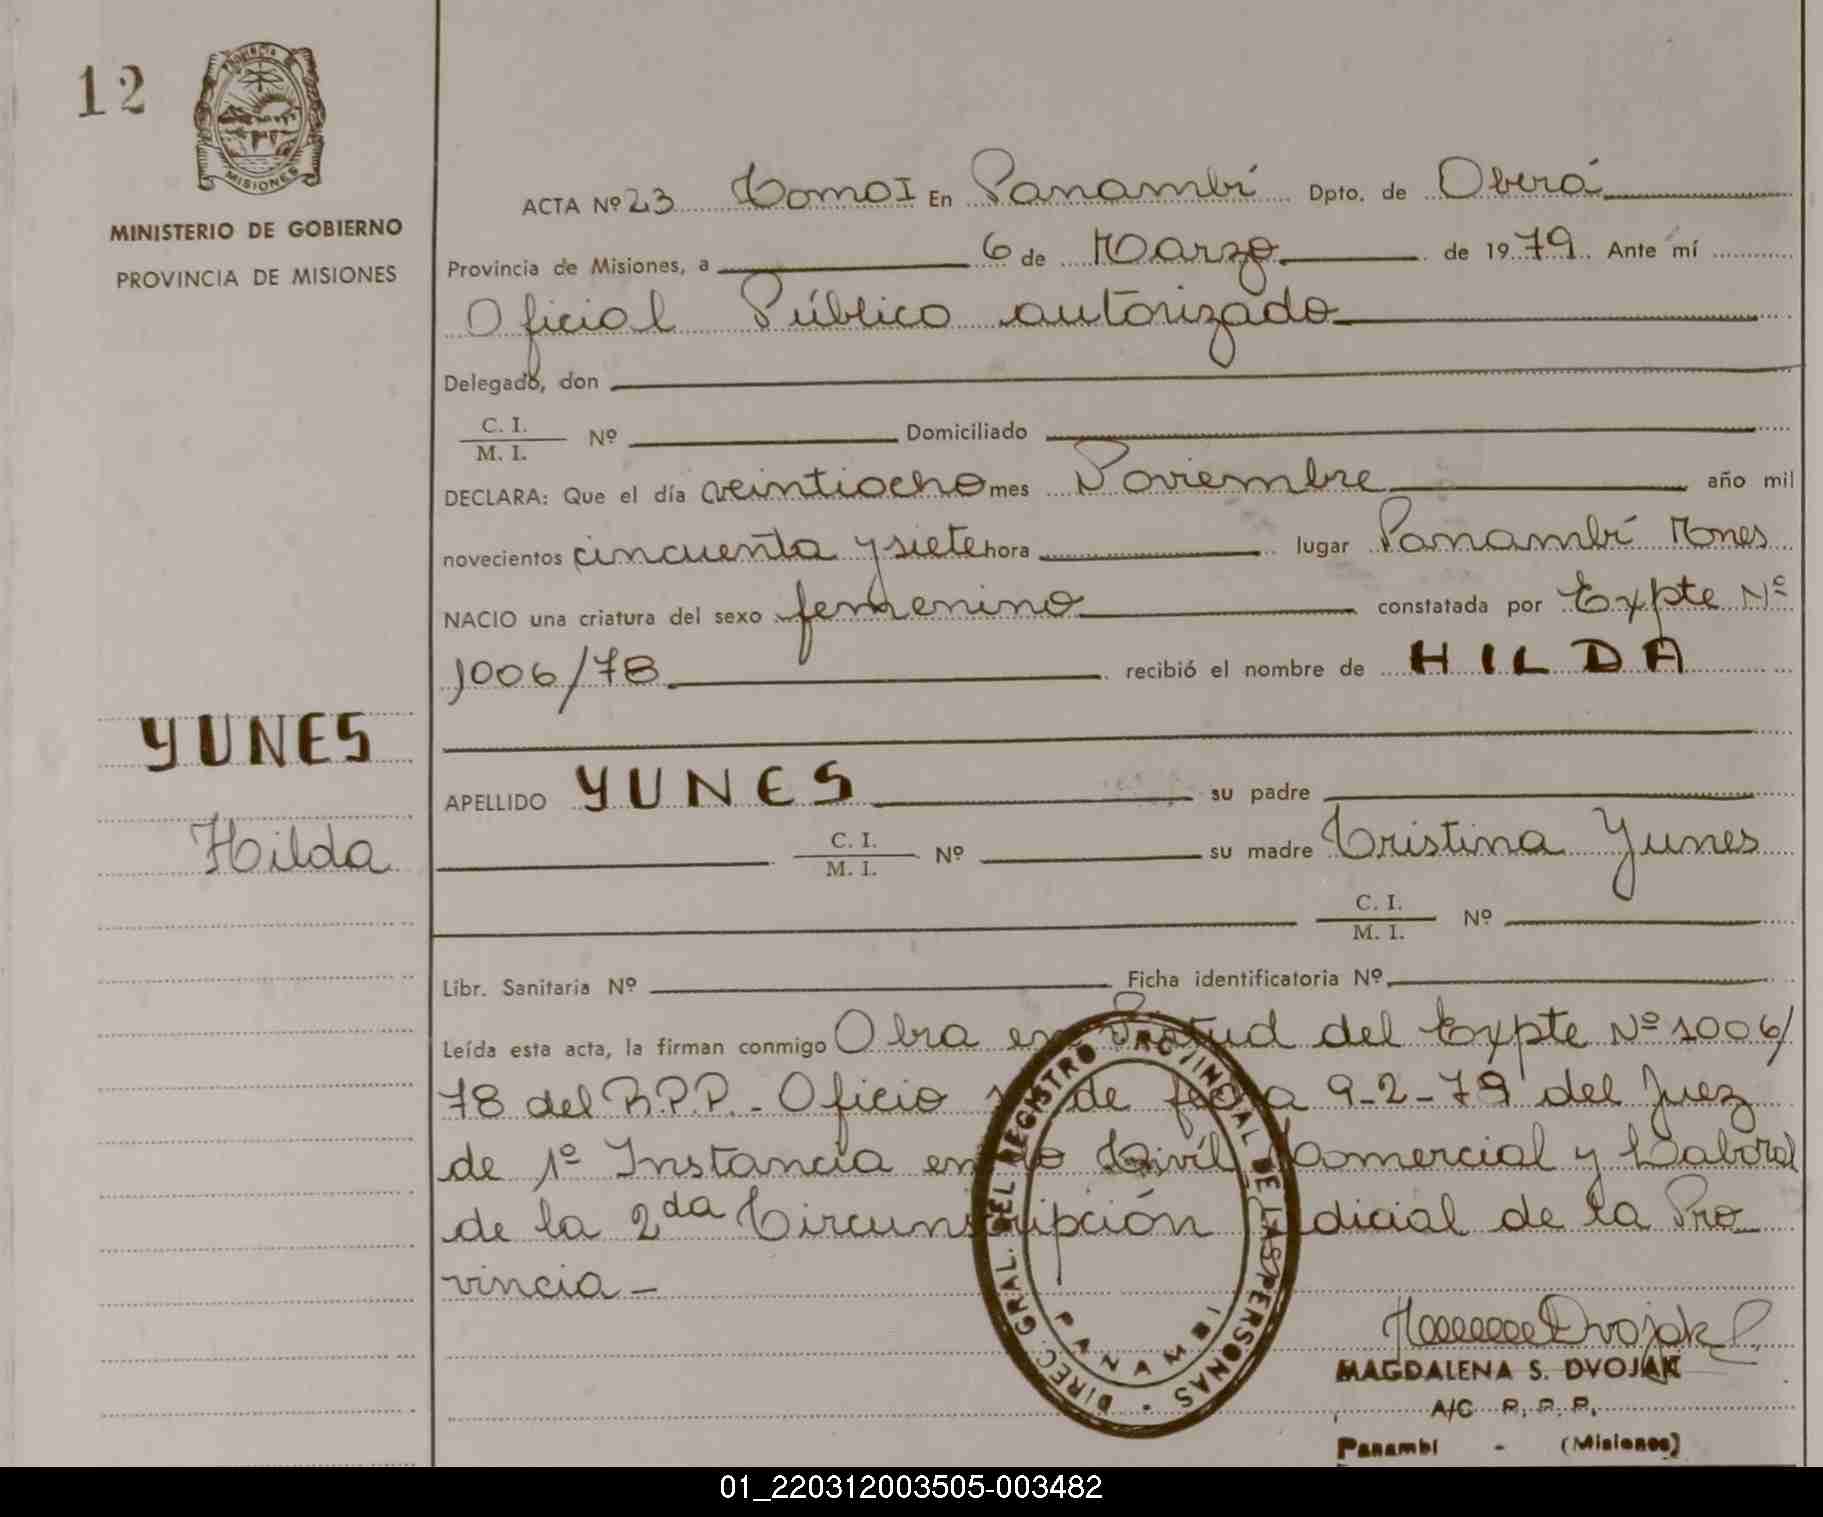 12
PROVINCIA DE
MISIONES
MINISTERIO DE GOBIERNO
PROVINCIA DE MISIONES
ACTA Nº 23 Tomo I En Panambí Dpto. de Oberá
Provincia de Misiones, a 6 de Marzo de 1979. Ante mí
Oficial Público autorizado
Delegado, don
C. I.
M. I. Nº Domiciliado
DECLARA: Que el día veintiocho mes Noviembre año mil
novecientos cincuenta y siete hora lugar Panambí Mnes
NACIO una criatura del sexo femenino constatada por Expte Nº
1006/78 recibió el nombre de HILDA
YUNES
Hilda
APELLIDO YUNES su padre
C. I.
M. I. Nº su madre Cristina Yunes
C. I.
M. I. Nº
Libr. Sanitaria Nº Ficha identificatoria Nº
Leída esta acta, la firman conmigo Obra en Virtud del Expte Nº 1006/
78 del R.P.P. - Oficio de fecha 9-2-79 del Juez
de 1º Instancia en lo Civíl Comercial y Laboral
de la 2da Circunscripción Judicial de la Pro
vincia -
DIREC. GRAL. DEL REGISTRO PROVINCIAL DE LAS PERSONAS
PANAMBI
Dvojak
MAGDALENA S. DVOJAK
A/C R. P. P.
Panambí - (Misiones)
01_220312003505-003482